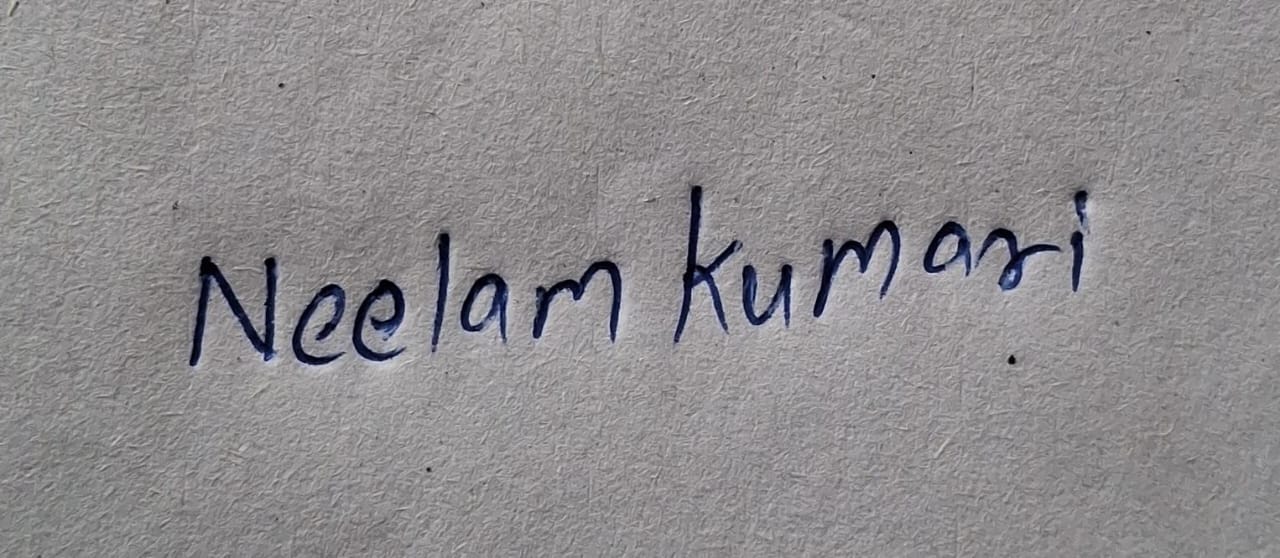 Neelam Kumari